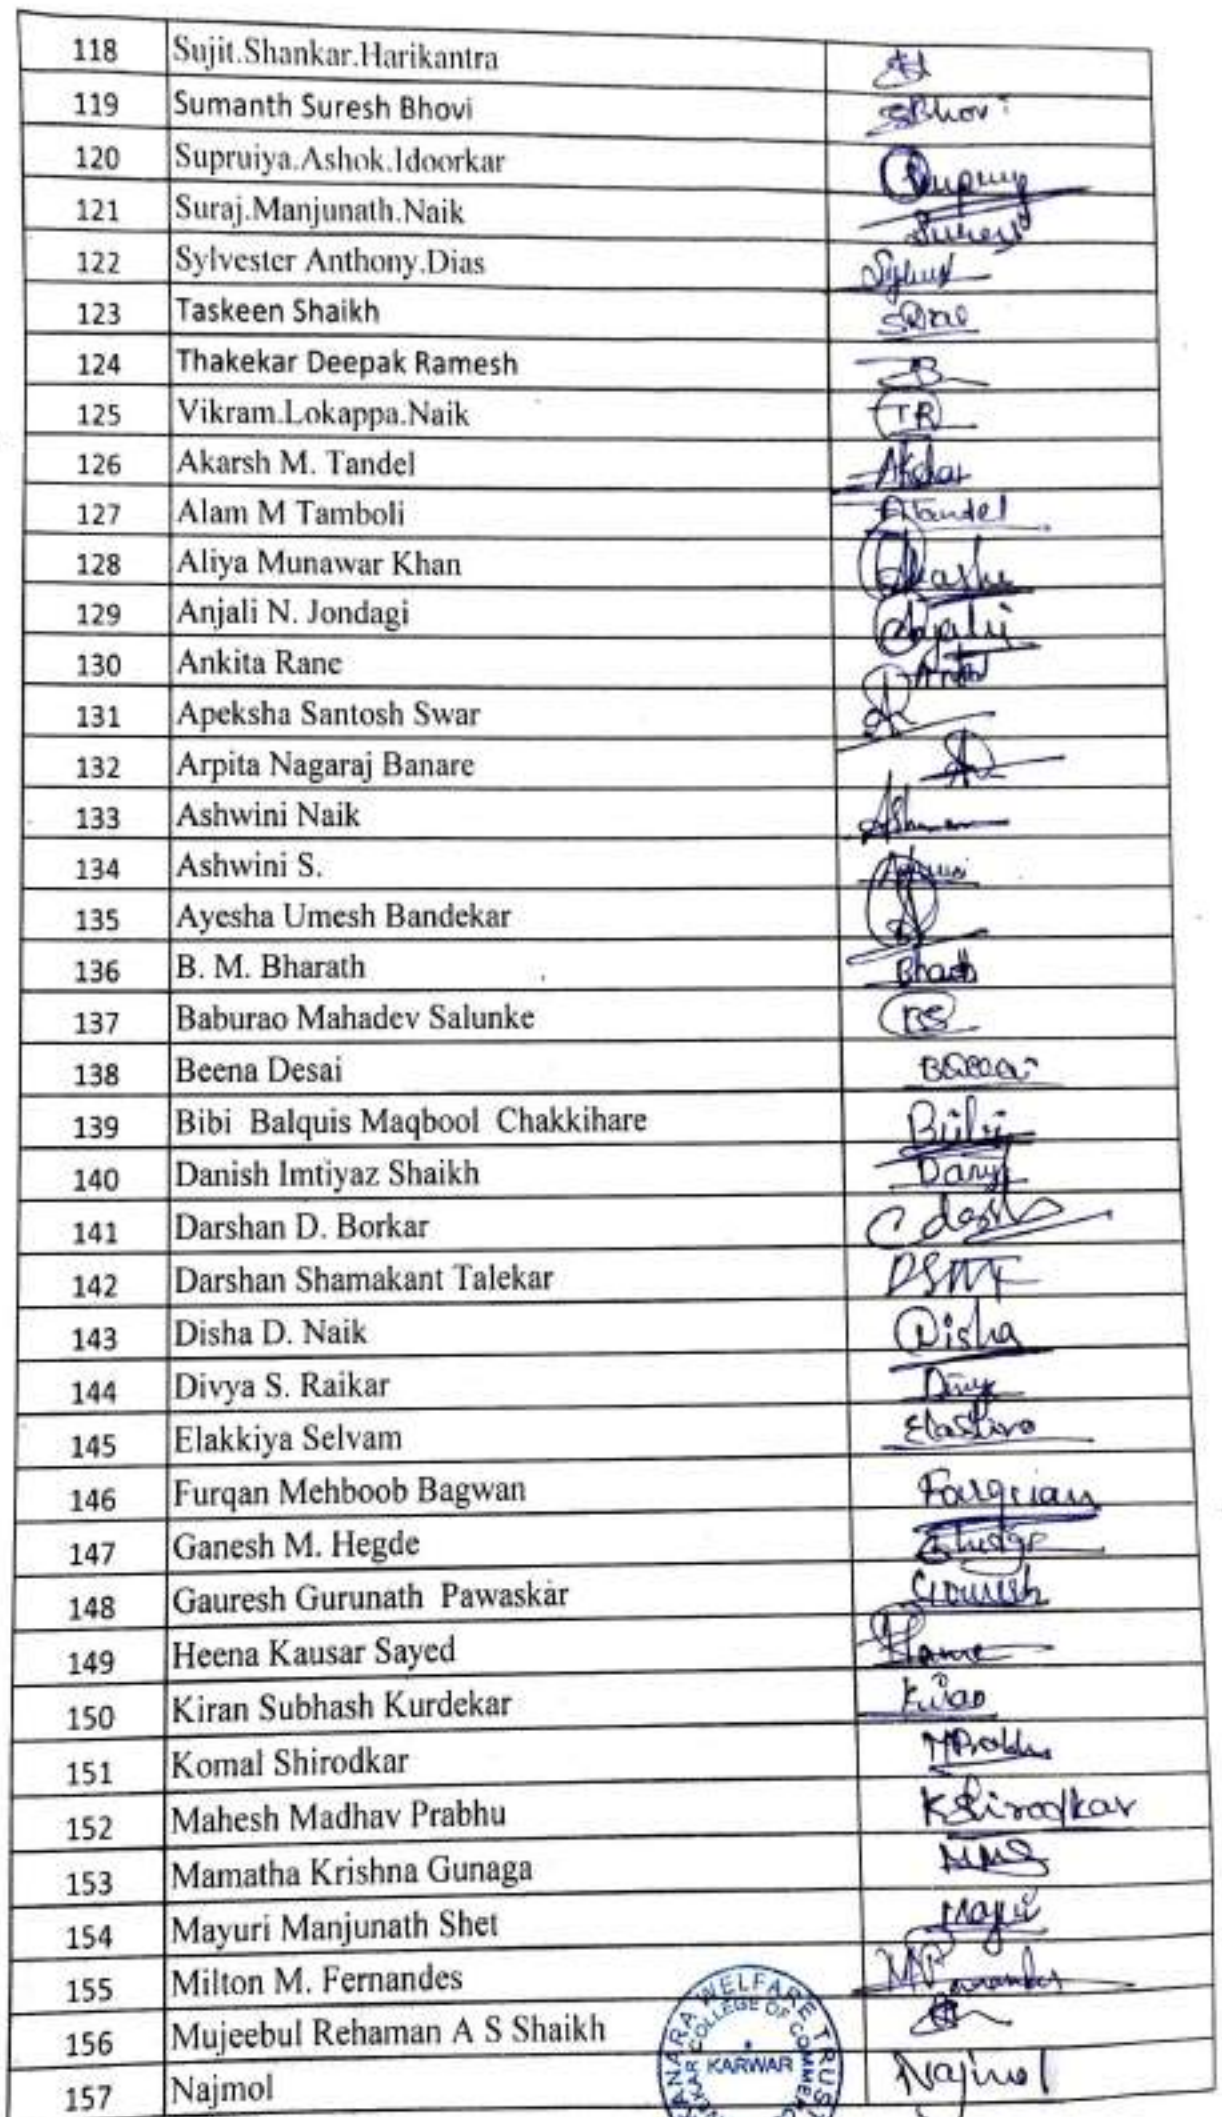 118 Sujit.Shankar.Harikantra
119 Sumanth Suresh Bhovi SBhovi
120 Supruiya.Ashok.Idoorkar
121 Suraj.Manjunath.Naik
122 Sylvester Anthony.Dias
123 Taskeen Shaikh
124 Thakekar Deepak Ramesh
125 Vikram.Lokappa.Naik TR
126 Akarsh M. Tandel
127 Alam M Tamboli Atandel
128 Aliya Munawar Khan
129 Anjali N. Jondagi
130 Ankita Rane
131 Apeksha Santosh Swar
132 Arpita Nagaraj Banare
133 Ashwini Naik
134 Ashwini S.
135 Ayesha Umesh Bandekar
136 B. M. Bharath
137 Baburao Mahadev Salunke BS
138 Beena Desai
139 Bibi Balquis Maqbool Chakkihare Bibi
140 Danish Imtiyaz Shaikh
141 Darshan D. Borkar
142 Darshan Shamakant Talekar
143 Disha D. Naik Disha
144 Divya S. Raikar
145 Elakkiya Selvam
146 Furqan Mehboob Bagwan
147 Ganesh M. Hegde
148 Gauresh Gurunath Pawaskar Gauresh
149 Heena Kausar Sayed
150 Kiran Subhash Kurdekar
151 Komal Shirodkar MPrabhu
152 Mahesh Madhav Prabhu KShirodkar
153 Mamatha Krishna Gunaga
154 Mayuri Manjunath Shet
155 Milton M. Fernandes
156 Mujeebul Rehaman A S Shaikh
157 Najmol Najmol
WELFARE TRUST
COLLEGE OF COMMERCE
KARWAR